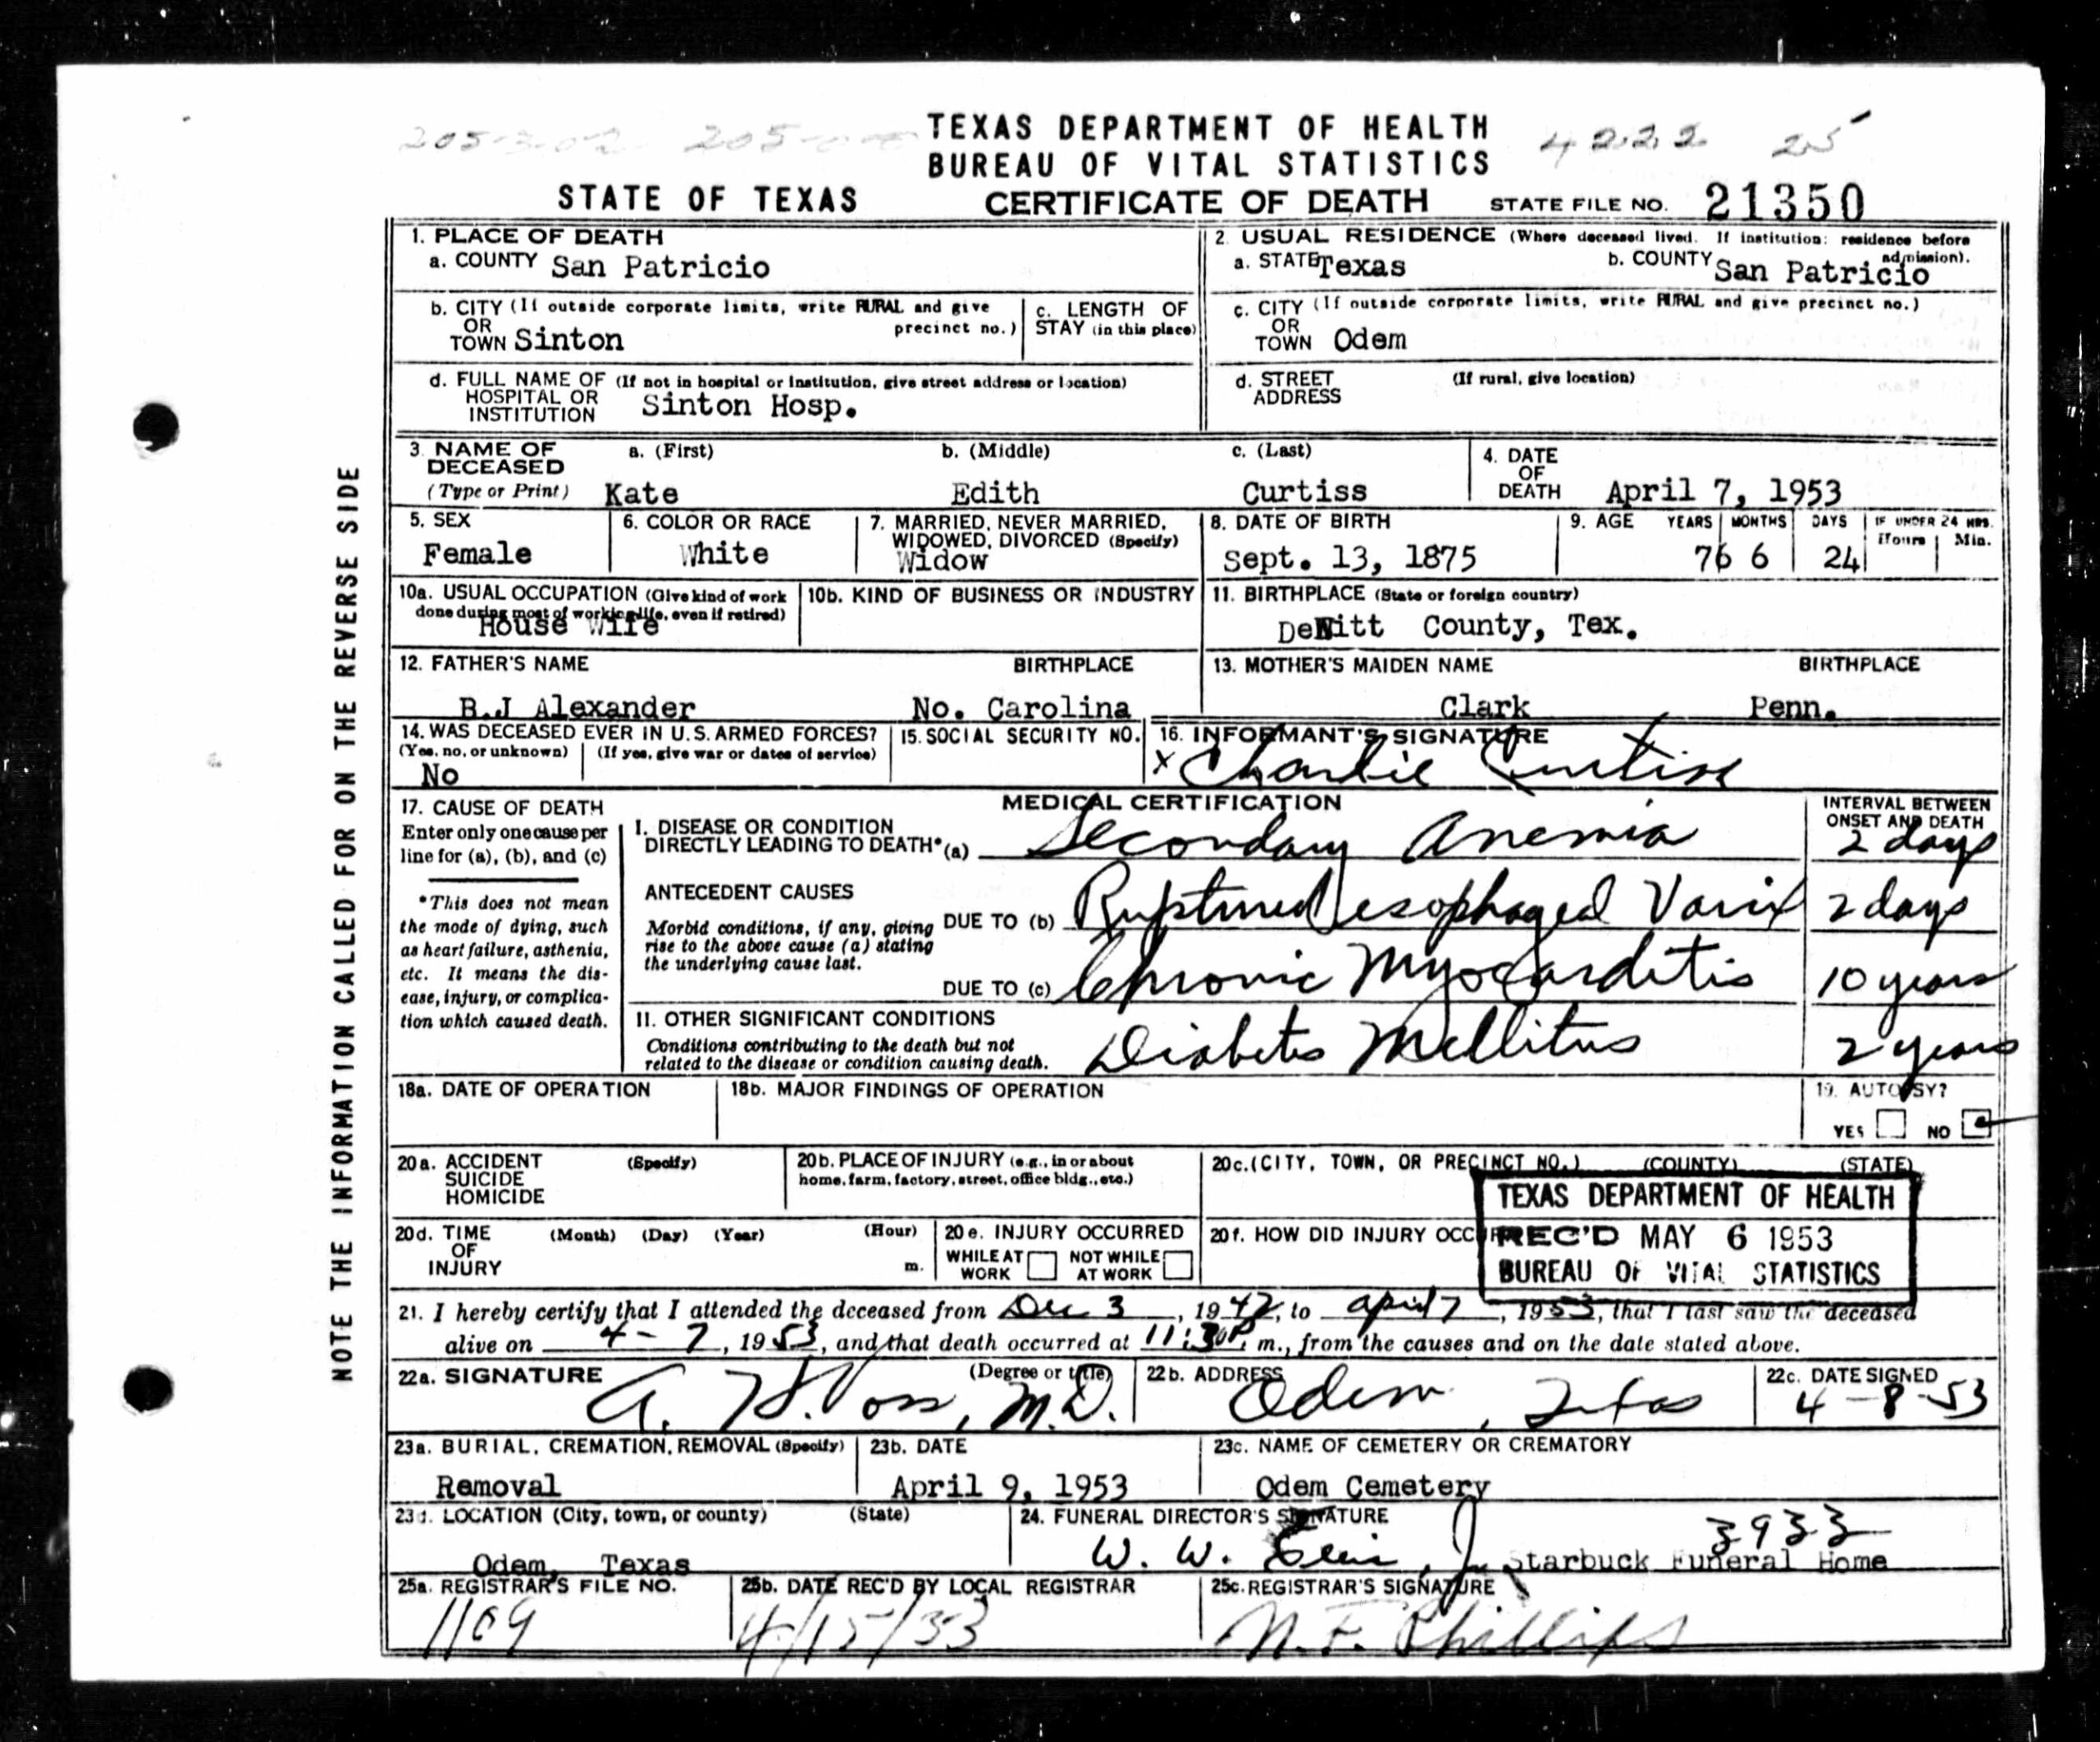 TEXAS DEPARTMENT OF HEALTH
BUREAU OF VITAL STATISTICS
4222 25
STATE OF TEXAS CERTIFICATE OF DEATH STATE FILE NO. 21350
NOTE THE INFORMATION CALLED FOR ON THE REVERSE SIDE
1. PLACE OF DEATH
a. COUNTY San Patricio
2. USUAL RESIDENCE (Where deceased lived. If institution: residence before admission).
a. STATE Texas b. COUNTY San Patricio
b. CITY (If outside corporate limits, write RURAL and give precinct no.)
OR
TOWN Sinton
c. LENGTH OF
STAY (in this place)
c. CITY (If outside corporate limits, write RURAL and give precinct no.)
OR
TOWN Odem
d. FULL NAME OF (If not in hospital or institution, give street address or location)
HOSPITAL OR
INSTITUTION Sinton Hosp.
d. STREET (If rural, give location)
ADDRESS
3. NAME OF DECEASED (Type or Print)
a. (First) b. (Middle) c. (Last)
Kate Edith Curtiss
4. DATE OF DEATH April 7, 1953
5. SEX
Female
6. COLOR OR RACE
White
7. MARRIED, NEVER MARRIED,
WIDOWED, DIVORCED (Specify)
Widow
8. DATE OF BIRTH
Sept. 13, 1875
9. AGE YEARS MONTHS DAYS IF UNDER 24 HRS. Hours Min.
76 6 24
10a. USUAL OCCUPATION (Give kind of work
done during most of working life, even if retired)
House Wife
10b. KIND OF BUSINESS OR INDUSTRY
11. BIRTHPLACE (State or foreign country)
DeWitt County, Tex.
12. FATHER'S NAME BIRTHPLACE
B.J Alexander No. Carolina
13. MOTHER'S MAIDEN NAME BIRTHPLACE
Clark Penn.
14. WAS DECEASED EVER IN U.S. ARMED FORCES?
(Yes, no, or unknown) (If yes, give war or dates of service)
No
15. SOCIAL SECURITY NO.
16. INFORMANT'S SIGNATURE
x Charlie Curtiss
17. CAUSE OF DEATH
Enter only one cause per
line for (a), (b), and (c)
*This does not mean
the mode of dying, such
as heart failure, asthenia,
etc. It means the dis-
ease, injury, or complica-
tion which caused death.
MEDICAL CERTIFICATION
INTERVAL BETWEEN
ONSET AND DEATH
I. DISEASE OR CONDITION
DIRECTLY LEADING TO DEATH* (a) Secondary Anemia 2 days
ANTECEDENT CAUSES
Morbid conditions, if any, giving
rise to the above cause (a) stating
the underlying cause last.
DUE TO (b) Ruptured esophageal Varix 2 days
DUE TO (c) Chronic Myocarditis 10 years
II. OTHER SIGNIFICANT CONDITIONS
Conditions contributing to the death but not
related to the disease or condition causing death.
Diabetes Mellitus 2 years
18a. DATE OF OPERATION
18b. MAJOR FINDINGS OF OPERATION
19. AUTOPSY?
YES NO
20a. ACCIDENT (Specify)
SUICIDE
HOMICIDE
20b. PLACE OF INJURY (e.g., in or about
home, farm, factory, street, office bldg., etc.)
20c. (CITY, TOWN, OR PRECINCT NO.) (COUNTY) (STATE)
20d. TIME (Month) (Day) (Year) (Hour)
OF
INJURY m.
20e. INJURY OCCURRED
WHILE AT WORK NOT WHILE AT WORK
20f. HOW DID INJURY OCC
TEXAS DEPARTMENT OF HEALTH
REC'D MAY 6 1953
BUREAU OF VITAL STATISTICS
21. I hereby certify that I attended the deceased from Dec 3, 1942, to april 7, 1953, that I last saw the deceased
alive on 4-7, 1953, and that death occurred at 11:30P. m., from the causes and on the date stated above.
22a. SIGNATURE (Degree or title)
A. H. Voss, M.D.
22b. ADDRESS
Odem, Texas
22c. DATE SIGNED
4-8-53
23a. BURIAL, CREMATION, REMOVAL (Specify)
Removal
23b. DATE
April 9, 1953
23c. NAME OF CEMETERY OR CREMATORY
Odem Cemetery
23d. LOCATION (City, town, or county) (State)
Odem, Texas
24. FUNERAL DIRECTOR'S SIGNATURE
3933
W. W. Jr Starbuck Funeral Home
25a. REGISTRAR'S FILE NO.
1109
25b. DATE REC'D BY LOCAL REGISTRAR
4/15/53
25c. REGISTRAR'S SIGNATURE
N.F. Phillips